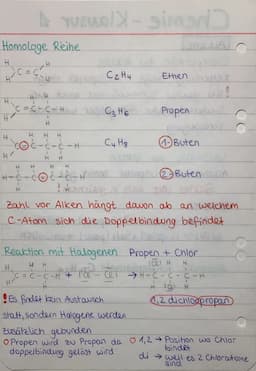 Homologe Reihe
H H
C=C
H H
C₂H₄ Ethen
H H H
C=C-C-H
H H
C₃H₆ Propen
C₄H₈ 1-Buten
2-Buten
Zahl vor Alken hängt davon ab an welchem
C-Atom sich die Doppelbindung befindet
Reaktion mit Halogenen Propen + Chlor
C=C-C-H + |Cl-Cl| → H-C-C-C-H
! Es findet kein Austausch
1,2 dichlorpropan
statt, sondern Halogene werden
zusätzlich gebunden
Propen wird zu Propan da
doppelbindung gelöst wird
1,2 → Position wo Chlor
bindet
di → weil es 2 Chloratome
sind